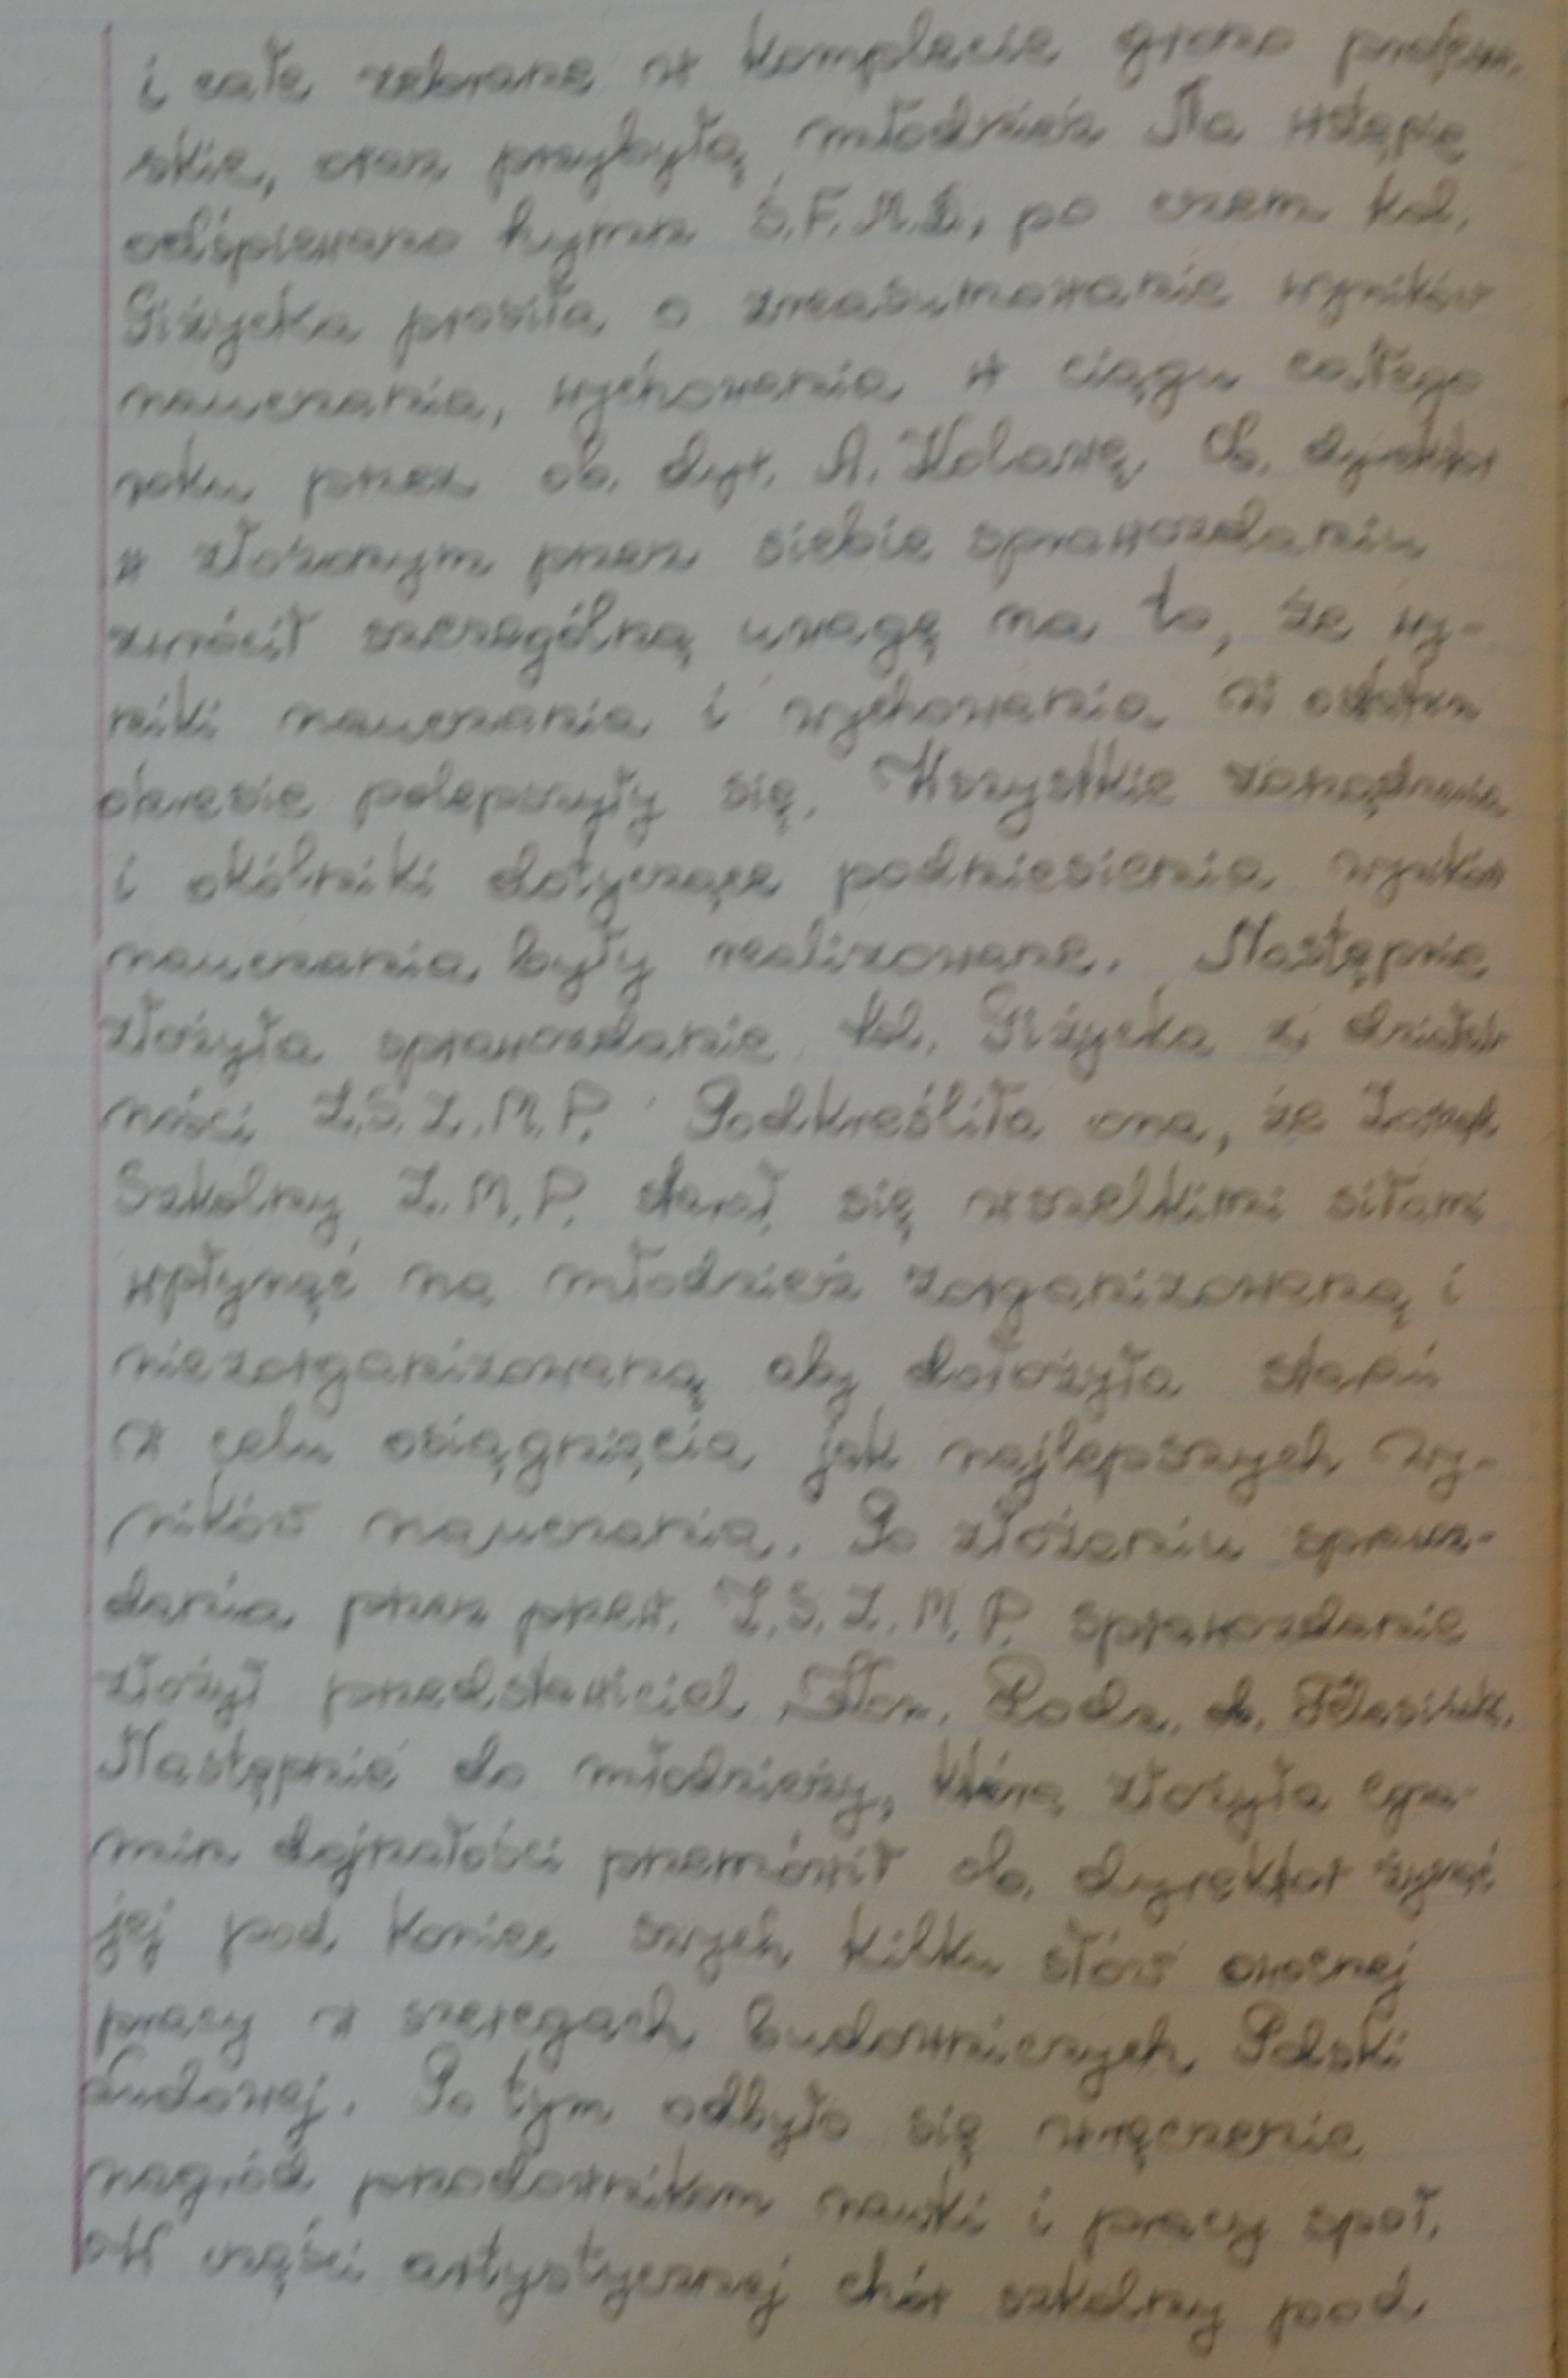 i całe zebrane w komplecie grono profesor.
skie, oraz przybyłą młodzież Na wstępie
odśpiewano hymn Ś.F.M.D., po czem kol.
Giżycka prosiła o zreasumowanie wyników
nauczania, wychowania w ciągu całego
roku przez ob. dyr. A. Ob. dyrektor
w złożonym przez siebie sprawozdaniu
zwrócił szczególną uwagę na to, że wy-
niki nauczania i wychowania w ostatn
okresie polepszyły się. Wszystkie zarządzenia
i okólniki dotyczące podniesienia wyników
nauczania były realizowane. Następnie
złożyła sprawozdanie kol. Giżycka z działal
ności Z.S.Z.M.P. Podkreśliła ona, że Zarząd
Szkolny Z.M.P. starał się wszelkimi siłami
wpłynąć na młodzież zorganizowaną i
niezorganizowaną aby dołożyła starań
w celu osiągnięcia jak najlepszych wy-
ników nauczania. Po złożeniu sprawoz-
dania przez przew. Z.S.Z.M.P. sprawozdanie
złożył przedstawiciel Kom. Rodz. ob.
Następnie do młodzieży, która złożyła egza-
min dojrzałości przemówił ob. dyrektor życząc
jej pod koniec swych kilku słów owocnej
pracy w szeregach budowniczych Polski
Ludowej. Po tym odbyło się wręczenie
nagród przodownikom nauki i pracy społ.
W części artystycznej chór szkolny pod